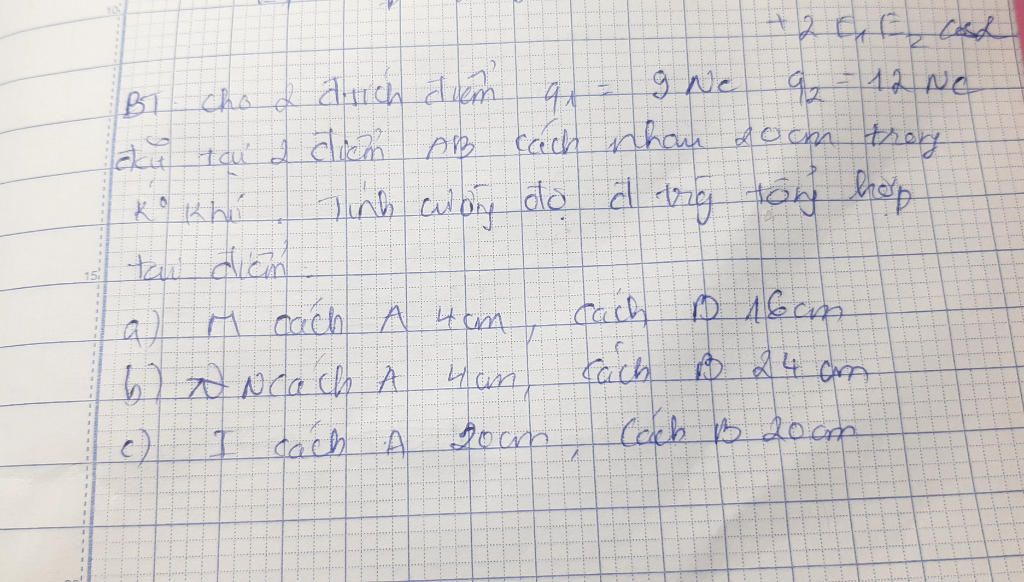 + 2 E₁ E₂ cosα
BT. Cho 2 đ.tích điểm q₁ = 9 NC q₂ = 12 NC
đặt tại 2 điểm AB cách nhau 20cm trong
k⁰ khí. Tính cường độ đ trg tổng hợp
tại điểm.
a) M cách A 4cm, cách B 16cm
b) N cách A 4cm, cách B 24 cm
c) I cách A 20cm, cách B 20cm
15